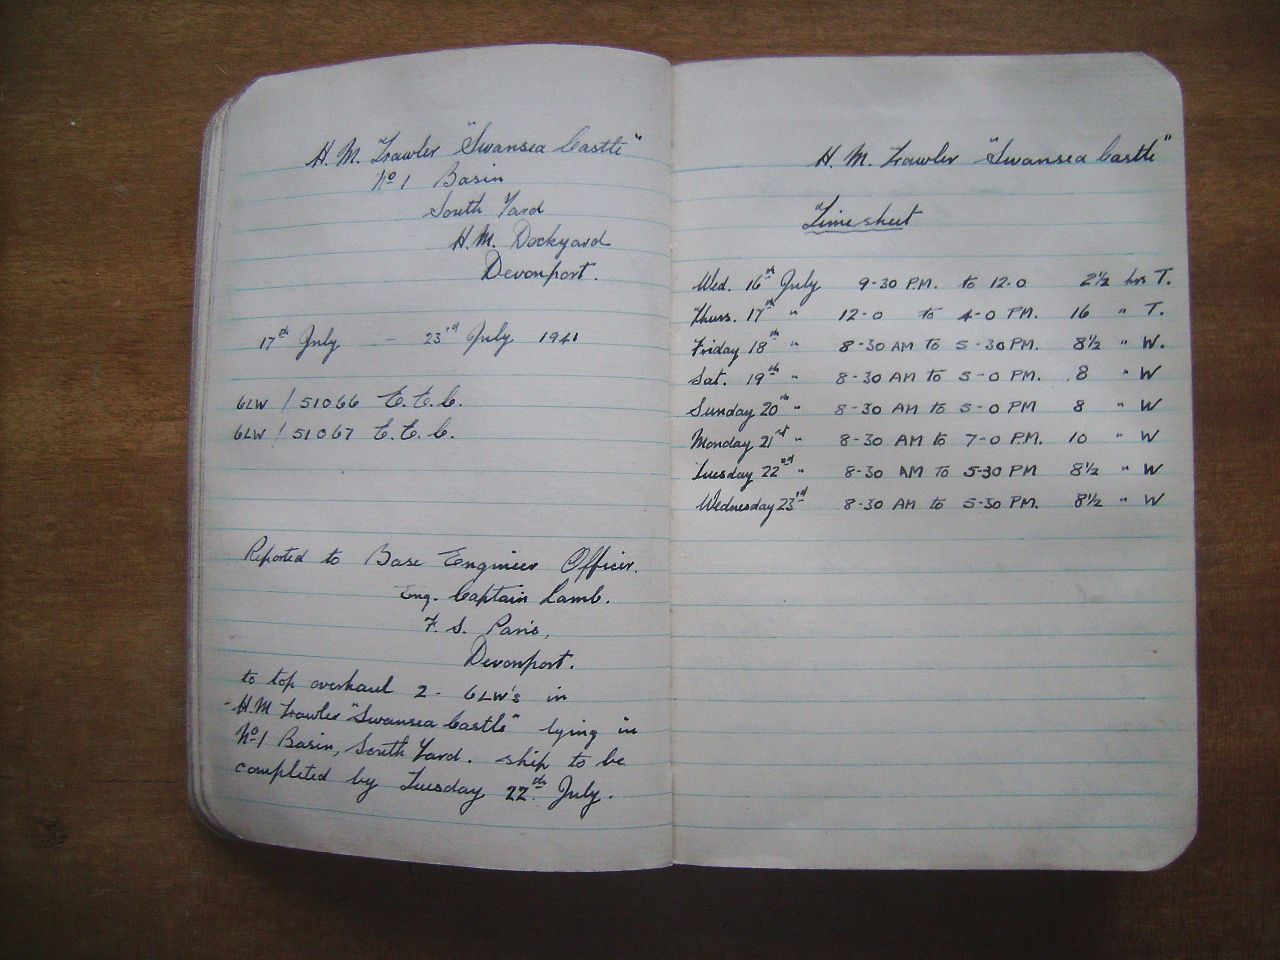 H. M. Trawler "Swansea Castle"
Nº 1 Basin
South Yard
H.M. Dockyard
Devonport.
17th July - 23rd July 1941
6LW / 51066 E.E.C.
6LW / 51067 E.E.C.
Reported to Base Engineer Officer.
Eng. Captain Lamb.
F. S. Paris,
Devonport.
to top overhaul 2 - 6LW's in
H.M Trawler "Swansea Castle" lying in
Nº 1 Basin, South Yard. ship to be
completed by Tuesday 22nd July.
H. M. Trawler "Swansea Castle"
"Time sheet
Wed. 16th July 9-30 P.M. to 12-0 2½ hrs T.
Thurs. 17th " 12-0 to 4-0 PM. 16 " T.
Friday 18th " 8-30 AM to 5-30 PM. 8½ " W.
Sat. 19th " 8-30 AM to 5-0 PM. 8 " W
Sunday 20th " 8-30 AM to 5-0 PM 8 " W
Monday 21st " 8-30 AM to 7-0 P.M. 10 " W
Tuesday 22nd " 8-30 AM TO 5-30 PM 8½ " W
Wednesday 23rd 8-30 AM to 5-30 PM. 8½ " W